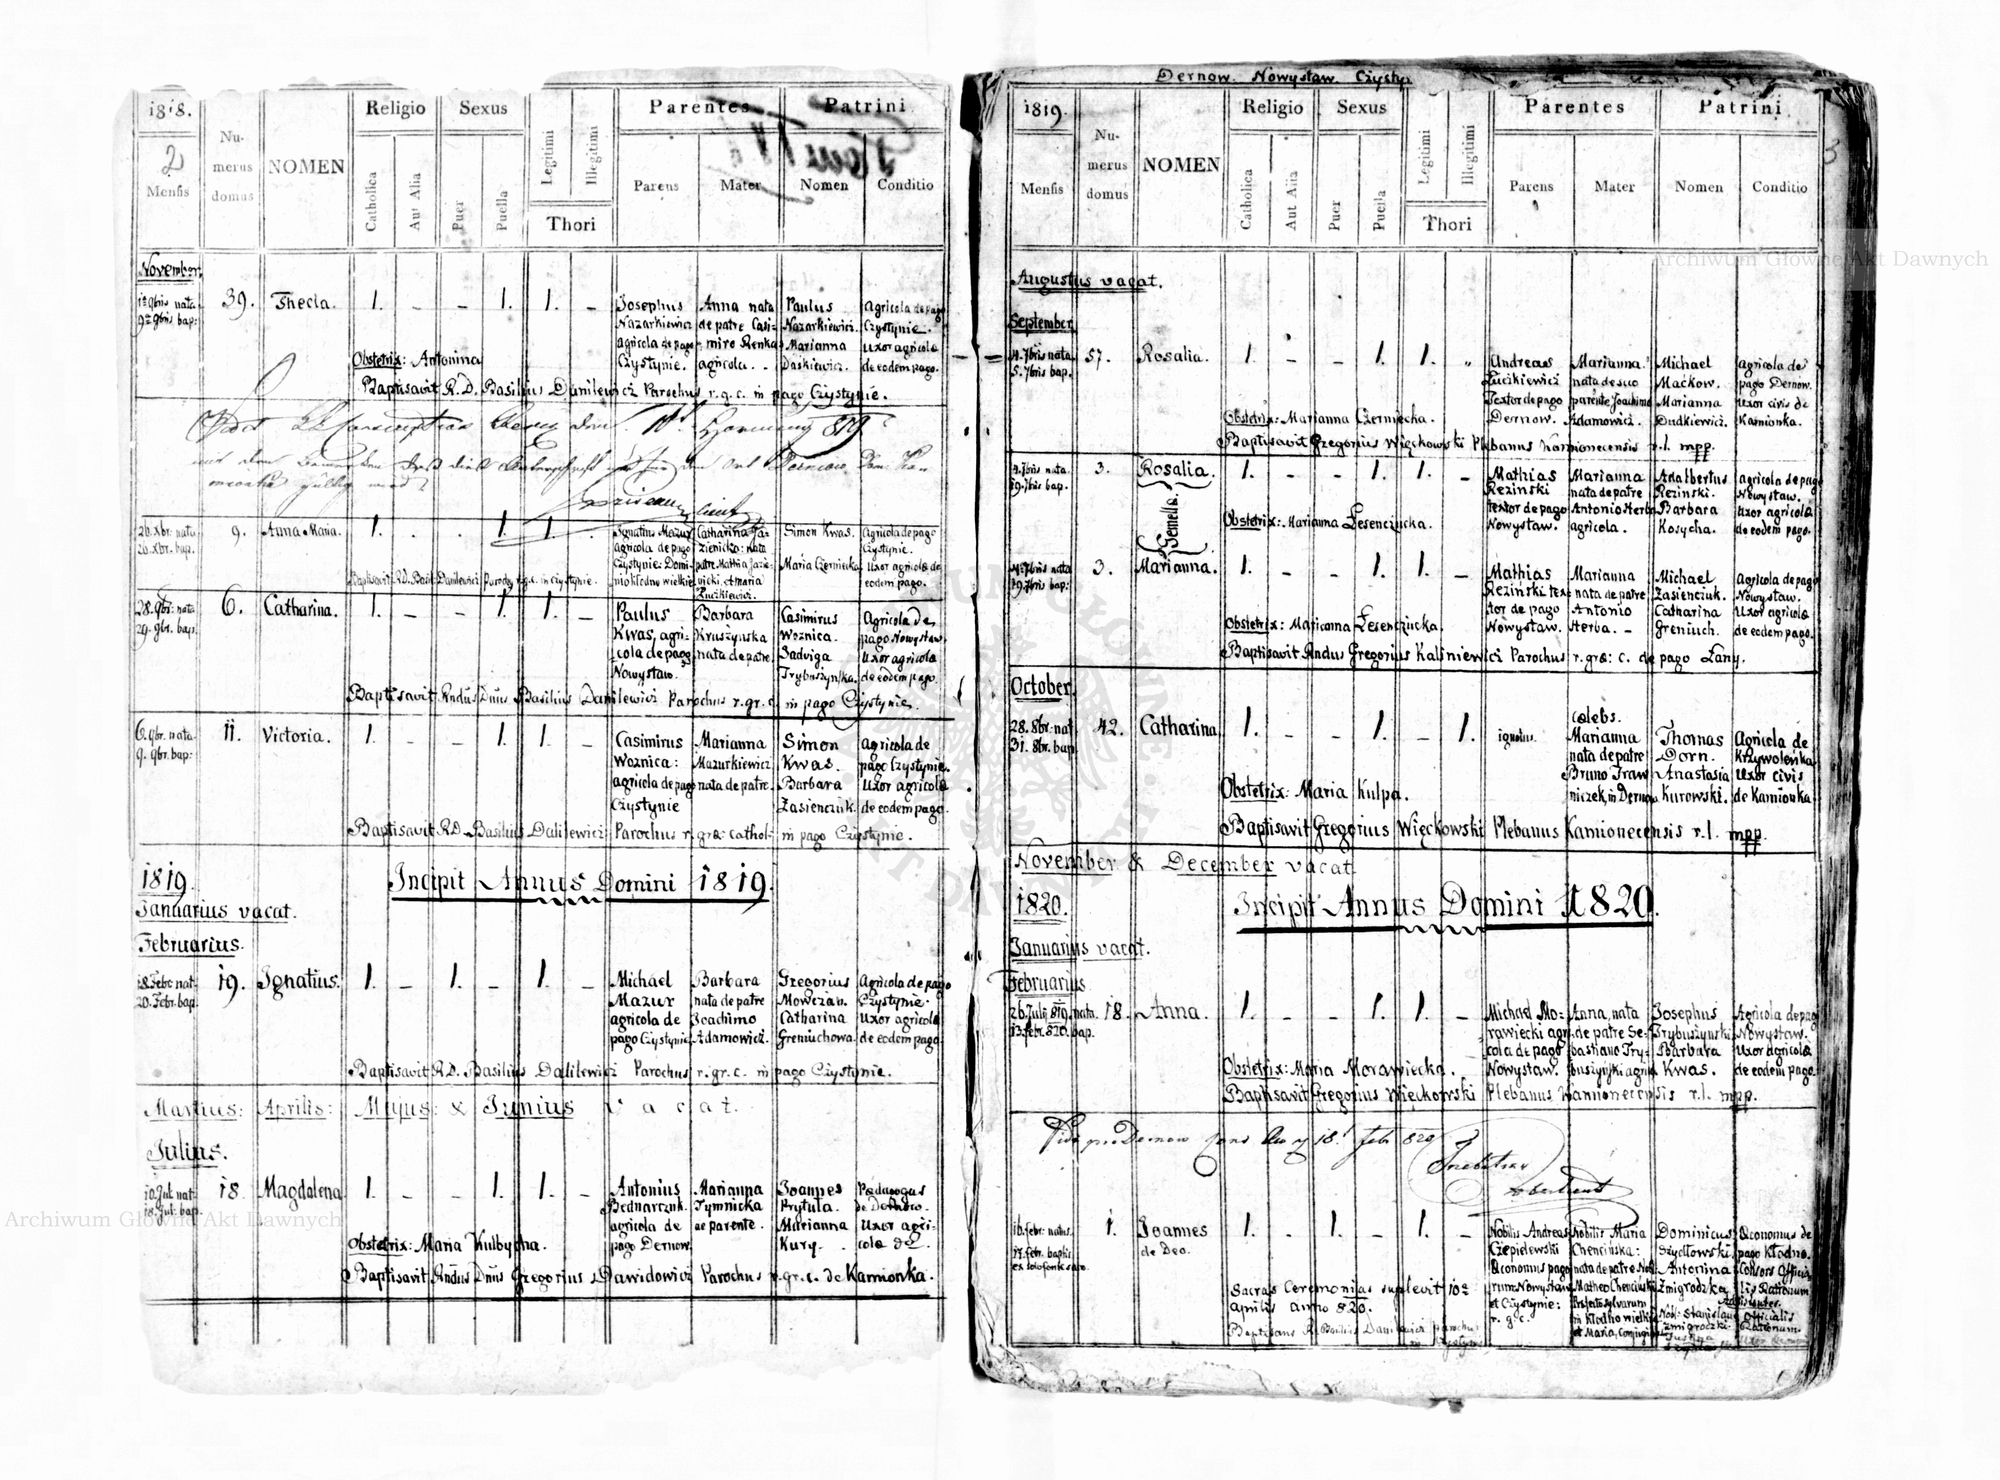 1818.
2
Mensis
Numerus domus
NOMEN
Religio
Catholica
Aut Alia
Sexus
Puer
Puella
Legitimi
Illegitimi
Thori
Parentes
Parens
Mater
Patrini
Nomen
Conditio
November.
1ª 9bris nata
9ª 9bris bap:
39. Thecla. 1. - - 1. 1. -
Josephus
Nazarkiewicz
agricola de pago
Czystynie.
Anna nata
de patre Casi-
miro Renka
agricola.
Paulus
Nazarkiewicz.
Marianna
Daskiewicz.
agricola de pago
Czystynie.
uxor agricolæ
de eodem pago.
Obstetrix: Antonina
Baptisavit R.D. Basilius Danilewicz Parochus r.g.c. in pago Czystynie.
26. Xbr. nata
9. Anna Maria. 1. . . 1. 1. .
Ignatius Mazur
agricola de pago
Czystynie Domi-
nio Kłodno wielkie
Catharina Ja-
zienicka: nata
patre Mathia Jazie-
nicki, et Maria
Łuczkiewicz.
Simon Kwas.
Maria Czerniecka
Agricola de pago
Czystynie.
Uxor agricolæ de
eodem pago.
Baptisavit RD. Basil: Danilewicz Paroch: r.g.c. in Czystynie.
28. 9br: nata
29. 9br. bap.
6. Catharina. 1. - - 1. 1. -
Paulus
Kwas, agri-
cola de pago
Nowystaw.
Barbara
Kruszynska
nata de patre
Casimirus
Woznica.
Jadviga
Trybuszynska.
Agricola de
pago Nowystaw
uxor agricolæ
de eodem pago.
Baptisavit Rndus Dnus Basilius Danilewicz Parochus r.gr.c. in pago Czystynie.
6. 9br. nata
9. 9br. bap:
11. Victoria. 1. - - 1. 1. -
Casimirus
Woznica:
agricola de pago
Czystynie
Marianna
Mazurkiewicz
nata de patre.
Simon
Kwas.
Barbara
Zasienczuk.
Agricola de
pago Czystynie.
Uxor agricolæ
de eodem pago.
Baptisavit RD. Basilius Dalilewicz Parochus r. græ: cathol: in pago Czystynie.
1819.
Incipit Annus Domini 1819.
Januarius vacat.
Februarius.
18. Febr. nat:
20. Febr. bap.
19. Ignatius. 1. - 1. - 1. -
Michael
Mazur
agricola de
pago Czystynie
Barbara
nata de patre
Joachimo
Adamowicz.
Gregorius
Mowczan.
Catharina
Greniuchowa
Agricola de pago
Czystynie.
Uxor agricolæ
de eodem pago.
Baptisavit R.D. Basilius Dalilewicz Parochus r.gr.c. in pago Czystynie.
Martius: Aprilis: Mayus: & Junius vacat.
Julius.
10. Jul. nat:
18. Jul: bap.
18. Magdalena 1. - - 1. 1. -
Antonius
Bednarczuk.
agricola de
pago Dernow.
Marianna
Tymnicka
ae parente.
Joannes
Prytula.
Marianna
Kury.
Pædagogus
de Dernow.
Uxor agri-
colæ
Obstetrix: Maria Kulbycha.
Baptisavit Rndus Dnus Gregorius Dawidowicz Parochus r.gr.c. de Kamionka.
Dernow. Nowystaw. Czysty
1819.
3
Mensis
Numerus domus
NOMEN
Religio
Catholica
Aut Alia
Sexus
Puer
Puella
Legitimi
Illegitimi
Thori
Parentes
Parens
Mater
Patrini
Nomen
Conditio
Augustus vacat.
September
4. 7bris nata
5. 7bris bap.
57. Rosalia. 1. - - 1. 1. "
Andreas
Łuczkiewicz
Textor de pago
Dernow.
Marianna
nata de suo
parente Joachimo
Adamowicz.
Michael
Maćkow.
Marianna
Dudkiewicz.
agricola de
pago Dernow.
Uxor civis de
Kamionka.
Obstetrix: Marianna Czerniecha.
Baptisavit Gregorius Więckowski Plebanus Kamionecensis r.l. mpp.
4. 7bris nata
19. 7bris bap.
3. Rosalia. 1. - - 1. 1. -
Gemellæ.
Mathias
Rezinski
textor de pago
Nowystaw.
Marianna
nata de patre
Antonio Herba
agricola.
Adalbertus
Rezinski.
Barbara
Kosycha.
agricola de pago
Nowystaw.
Uxor agricolæ
de eodem pago.
Obstetrix: Marianna Lesenczucka.
4. 7bris nata
19. 7bris bap:
3. Marianna. 1. - - 1. 1. -
Mathias
Rezinski tex-
tor de pago
Nowystaw.
Marianna
nata de patre
Antonio
Herba. -
Michael
Zasienczuk.
Catharina
Greniuch.
agricola de pago
Nowystaw.
Uxor agricolæ
de eodem pago.
Obstetrix: Marianna Lesenczucka.
Baptisavit Rndus Gregorius Kaliniewicz Parochus r. græ: c. de pago Łany.
October
28. 8br: nat
31. 8br. bap
42. Catharina 1. - - 1. - 1.
ignotus.
cælebs.
Marianna
nata de patre
Bruno Traw-
niczek, in Dernow
Thomas
Dorn.
Anastasia
Kurowski.
Agricola de
Krzywoleńka
Uxor civis
de Kamionka
Obstetrix: Maria Kulpa.
Baptisavit Gregorius Więckowski Plebanus Kamionecensis r.l. mpp.
November & December vacat
1820.
Incipit Annus Domini 1820.
Januarius vacat.
Februarius
26. Julij 819. nata.
13. febr. 820. bap.
18. Anna. 1. - - 1. 1. -
Michael Mo-
rawiecki agri-
cola de pago
Nowystaw.
Anna, nata
de patre Se-
bastiano Try-
buszynski agric
Josephus
Trybuszynski
Barbara
Kwas.
Agricola de pago
Nowystaw.
Uxor agricolæ
de eodem pago.
Obstetrix: Maria Morawiecka.
Baptisavit Gregorius Więckowski Plebanus Kamionecensis r.l. mpp.
16. febr. natus.
17. febr. baptis
1. Joannes
de Deo. 1. - 1. - 1. -
Nobilis Andreas
Czepielewski
Œconomus pago
rum Nowystaw
et Czystynie:
r. g. c.
Nobilis Maria
Chencinska:
nata de patre Nob:
Matheo Chencinski
Præfecto sylvarum
in Kłodno wielkie
et Maria, conjugum
Dominicus
Szydłowski.
Antonina
Zmigrodzka
Nob: Stanislaus
Zmigrodzki.
Œconomus de
pago Kłodno.
Consors Officia-
lis Rationum
Assistentes.
Officialis
Rationum.
Sacras Ceremonias suplevit 10ª
Aprilis anno 820.
Baptisans R. Basilius Danilewicz parochus
Archiwum Główne Akt Dawnych
Archiwum Główne Akt Dawnych